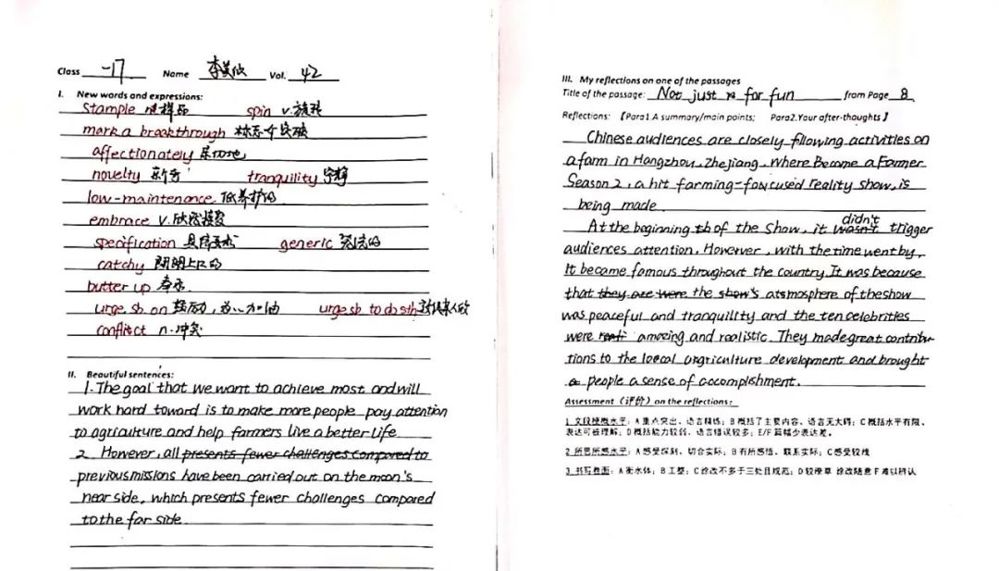 Class 一17 Name 李 欣 Vol. 42
I. New words and expressions:
Stample 样品 spin v.旋转
mark a breakthrough 标志个突破
affectionately 亲切地
novelty 新奇 tranquility 宁静
low-maintenance 低养护的
embrace v.欣然接受
specification 具体要求 generic 的
catchy 朗朗上口的
butter up 奉承
urge sb on 鼓励,为…加油 urge sb to do sth
conflict n.冲突
II. Beautiful sentences:
1. The goal that we want to achieve most and will
work hard toward is to make more people pay attention
to agriculture and help farmers live a better life
2. However, all presents fewer challenges compared to
previous missions have been carried out on the moon's
near side, which presents fewer challenges compared
to the far side.
III. My reflections on one of the passages
Title of the passage: Not just for fun from Page 8
Reflections: 【Para1.A summary/main points; Para2.Your after-thoughts】
Chinese audiences are closely fillowing activities on
a farm in Hangzhou, Zhejiang, where Become a Farmer
Season 2, a hit farming-foucused reality show, is
being made
At the beginning of the Show, it wasn't didn't trigger
audiences attention. However, with the time went by,
It became famous throughout the country. It was because
that they are were the show's atsmosphere of the show
was peaceful and tranquility and the ten celebrities
were amazing and realistic. They made great contribu-
tions to the local argriculture development and brought
a people a sense of accomplishment.
Assessment (评价) on the reflections:
1.文段梗概水平: A重点突出、语言精练; B概括了主要内容、语言无大碍; C概括水平有限、
表达可被理解; D概括能力较弱、语言错误较多; E/F篇幅少表达差。
2.所思所感水平: A感受深刻、切合实际; B有所感悟、联系实际; C感受较浅
3.书写卷面: A衡水体; B工整; C涂改不多于三处且规范; D较潦草 涂改随意 F难以辨认